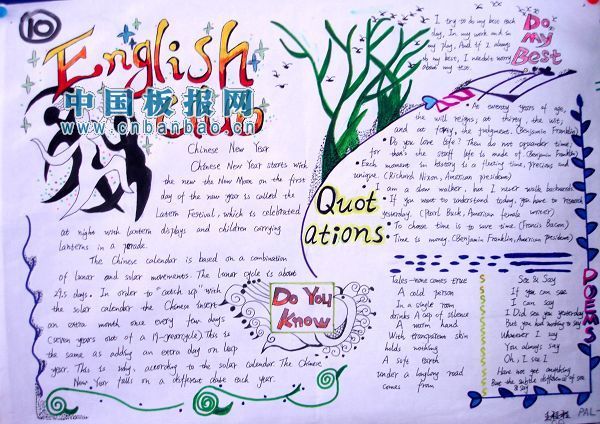 10
English
Club
中国板报网
www.cnbanbao.cn
Chinese New Year
Chinese New Year starts with
the new the New Moon on the first
day of the new year is called the
Latern Festival, which is celebrated
at night with lantern displays and children carrying
lanterns in a parade.
The Chinese calendar is based on a combination
of lunar and solar movements. The lunar cycle is about
29.5 days. In order to "catch up" with
the solar calendar the Chinese insert
an extra month once every few days
(seven years out of a 19-yearcycle). This is
the same as adding an extra day on leap
year. This is why, according to the solar calendar. The Chinese
New Year falls on a different date each year.
Do You
Know
I try to do my best each
day, In my work and in
my play, And if I always
do my best, I needn't worry
about my test.
Do
My
Best
Quot
ations:
At twenty years of age,
the will reigns; at thirty, the wit;
and at forty, the judgment. (Benjamin Franklin)
Do you love life? Then do not squander time;
for that's the stuff life is made of. (Benjamin Franklin)
Each moment in history is a fleeting time, precious and
unique. (Richard Nixon, American president)
I am a slow walker, but I never walk backwards.
If you want to understand today, you have to research
yesterday. (Pearl Buck, American female writer)
To choose time is to save time. (Francis Bacon)
Time is money. (Benjamin Franklin, American president)
POEMS
Tales-none comes true
A cold person
In a single room
drinks A cup of silence
A warm hand
With transparten skin
holds nothing
A soft earth
under a laughing road
comes from
See & Say
If you can see
I can say
I Did see you yesterday
But you had nothing to say
Whenever I say
You always say
Oh, I see I
Have not got anything
But the subtle difference of see
& say
PAL-